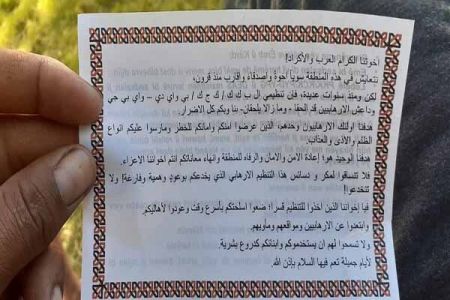 اخوتنا الكرام العرب والاكراد!
نتعايش في هذه المنطقة سويا اخوة واصدقاء وأقارب منذ قرون.
لكن ومنذ سنوات عديدة، فان تنظيمي ال ب ك ك / ك ج ك / بي واي دي – واي بي جي
وداعش الارهابيين قد الحقا - وما زالا يلحقان- بنا وبكم كل الاضرار.
هدفنا أولئك الارهابيون وحدهم، الذين عرضوا أمنكم وامانكم للخطر ومارسوا عليكم انواع
الظلم والأذى والعذاب.
هدفنا الوحيد هو: إعادة الامن والامان والرفاه للمنطقة وإنهاء معاناتكم انتم اخواننا الاعزاء.
فلا تنساقوا لمكر و دسائس هذا التنظيم الارهابي الذي يخدعكم بوعود وهمية وفارغة! ولا
تنخدعوا!
فيا اخواننا الذين اخذوا للتنظيم قسرا: ضعوا اسلحتكم بأسرع وقت وعودوا لأهاليكم.
وابتعدوا عن الارهابيين ومواقعهم ومأويهم.
ولا تسمحوا لهم ان يستخدموكم وابنائكم كدروع بشرية.
لأيام جميلة تعم فيها السلام بإذن الله.